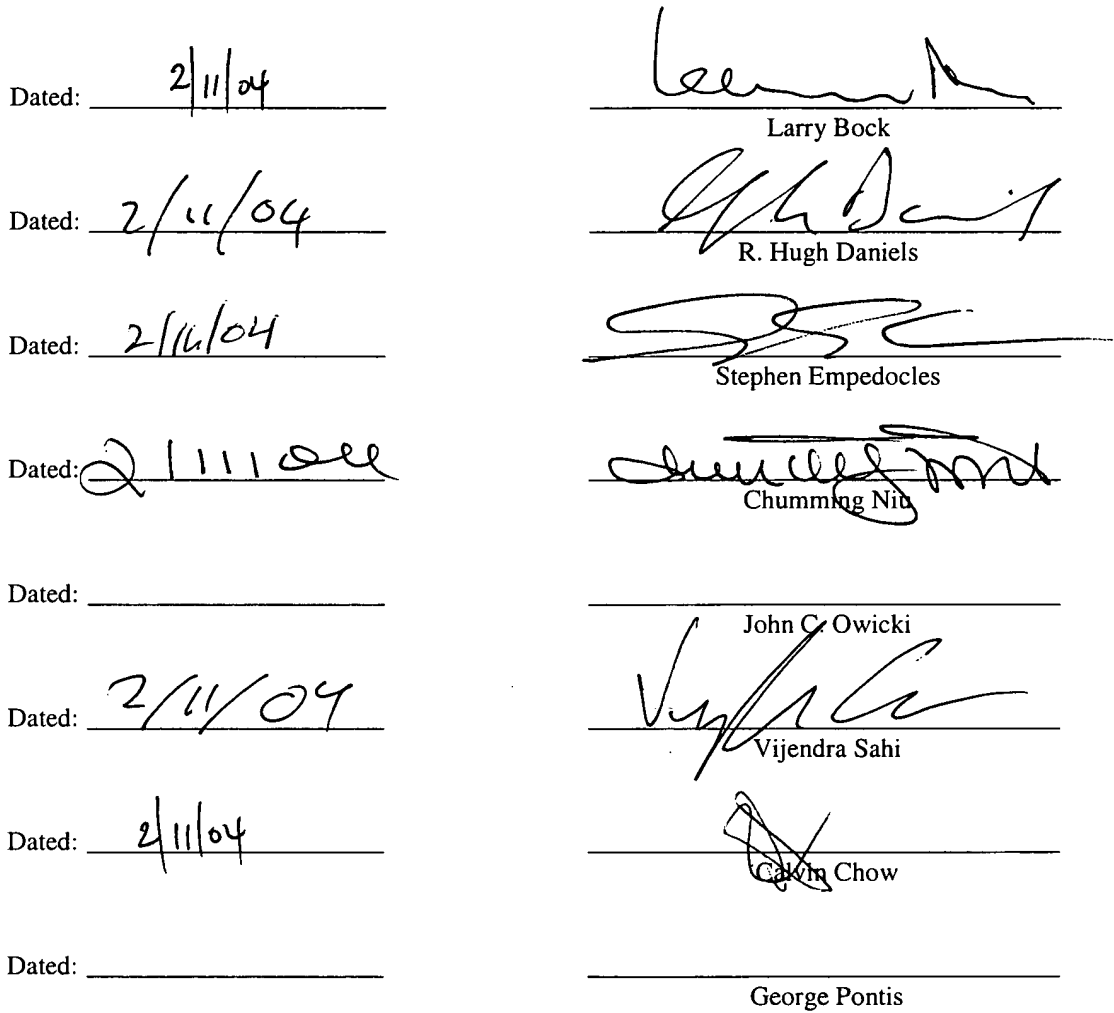 Dated: 2/11/04
Larry Bock
Dated: 2/11/04
R. Hugh Daniels
Dated: 2/11/04
Stephen Empedocles
Dated: 2/11/04
Chumming Niu
Dated:
John C. Owicki
Dated: 2/11/04
Vijendra Sahi
Dated: 2/11/04
Calvin Chow
Dated:
George Pontis